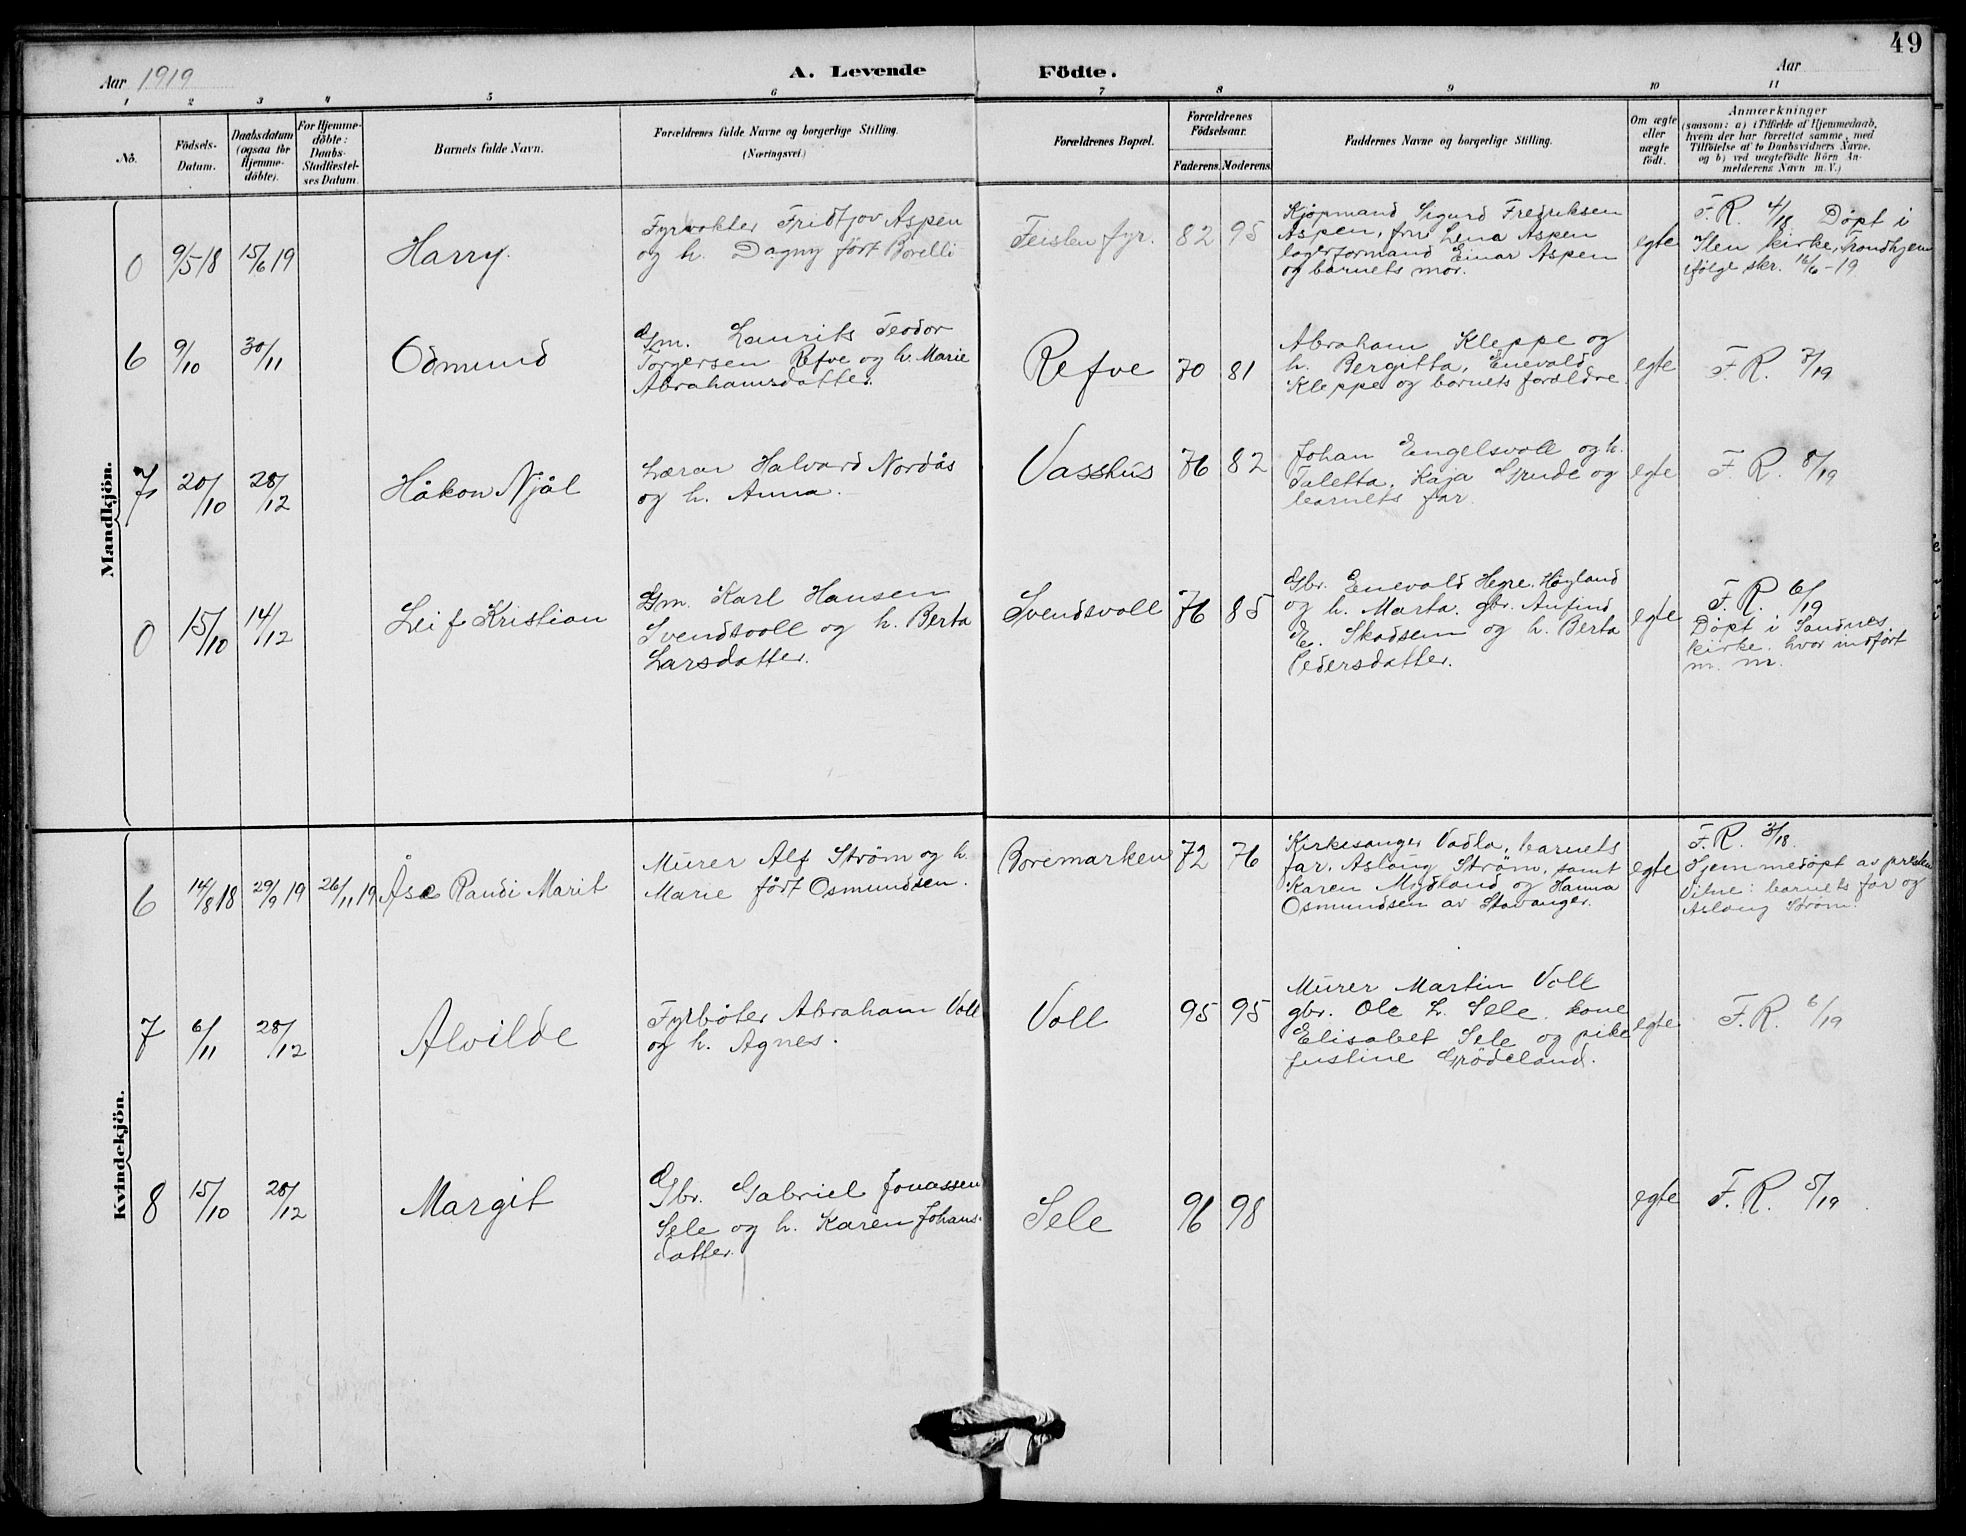 49
Aar 1919
A. Levende Födte.
Aar
1 2 3 4 5 6 7 8 9 10 11
No.
Födsels-
Datum.
Daabsdatum
(ogsaa for
Hjemme-
döbte).
For Hjemme-
döbte:
Daabs-
Stadfæstel-
ses Datum.
Barnets fulde Navn.
Forældrenes fulde Navne og borgerlige Stilling.
(Næringsvei.)
Forældrenes Bopæl.
Forældrenes
Födselsaar.
Faderens. Moderens.
Faddernes Navne og borgerlige Stilling.
Om ægte
eller
uægte
födt.
Anmærkninger
(saasom: a) i Tilfælde af Hjemmedaab,
hvem der har forrettet samme, med
Tilföielse af to Daabsvidners Navne.
og b) ved uægtefödte Börn An-
melderens Navn m. V.)
Mandkjön.
0 9/5 18 15/6 19 Harry.
Fyrvokter Fridtjov Aspen
og h. Dagny født Borelli
Feisten fyr. 82 95
Kjøpmand Sigurd Fredriksen
Aspen, fru Lena Aspen
lagerformand Einar Aspen
og barnets mor.
egte
F. R. 4/18 Døpt i
Ilen kirke, Trondhjem
ifølge skr. 16/6-19
6 9/10 30/11 Odmund
Gm. Laurits Teodor
Torgersen Refve og h. Marie
Abrahamsdatter.
Refve 70 81
Abraham Kleppe og
h. Bergitta, Enevald
Kleppe og barnets foræaldre
egte F. R. 7/19
7 20/10 28/12 Håkon Njål
Lærar Halvard Nordås
og h. Anna.
Vasshus 76 82
Johan Engelsvoll og h.
Taletta, Kaja Grude og
barnets far.
egte F. R. 8/19
0 15/10 14/12 Leif Kristian
Gm. Karl Hansen
Svendsvoll og h. Berta
Larsdatter.
Svendsvoll 76 85
Gbr. Enevald Hegre. Høyland
og h. Marta. gbr. Anfind
E. Skadsem og h. Berta
Pedersdatter.
egte
F. R. 6/19
Døpt i Sandnes
kirke. hvor indført
m. m.
Kvindekjön.
6 14/8 18 29/9 19 26/11 19 Åse Randi Marit
Murer Alf Strøm og h.
Marie født Osmundsen.
Boremarken 72 76
Kirkesanger Vadla, barnets
far, Aslaug Strøm, samt
Karen Mydland og Hanna
Osmundsen av Stavanger.
egte
F. R. 3/18.
Hjemmedøpt av presten
Vitne: barnets far og
Aslaug Strøm.
7 6/11 28/12 Alvilde
Fyrbøter Abraham Voll
og h. Agnes.
Voll 95 95
Murer Martin Voll
gbr. Ole L. Sele, kone
Elisabet Sele og pike
Justine Grödeland.
egte F. R. 6/19
8 15/10 28/12 Margit
Gbr. Gabriel Jonassen
Sele og h. Karen Johans-
datter.
Sele 96 98
egte F. R. 5/19